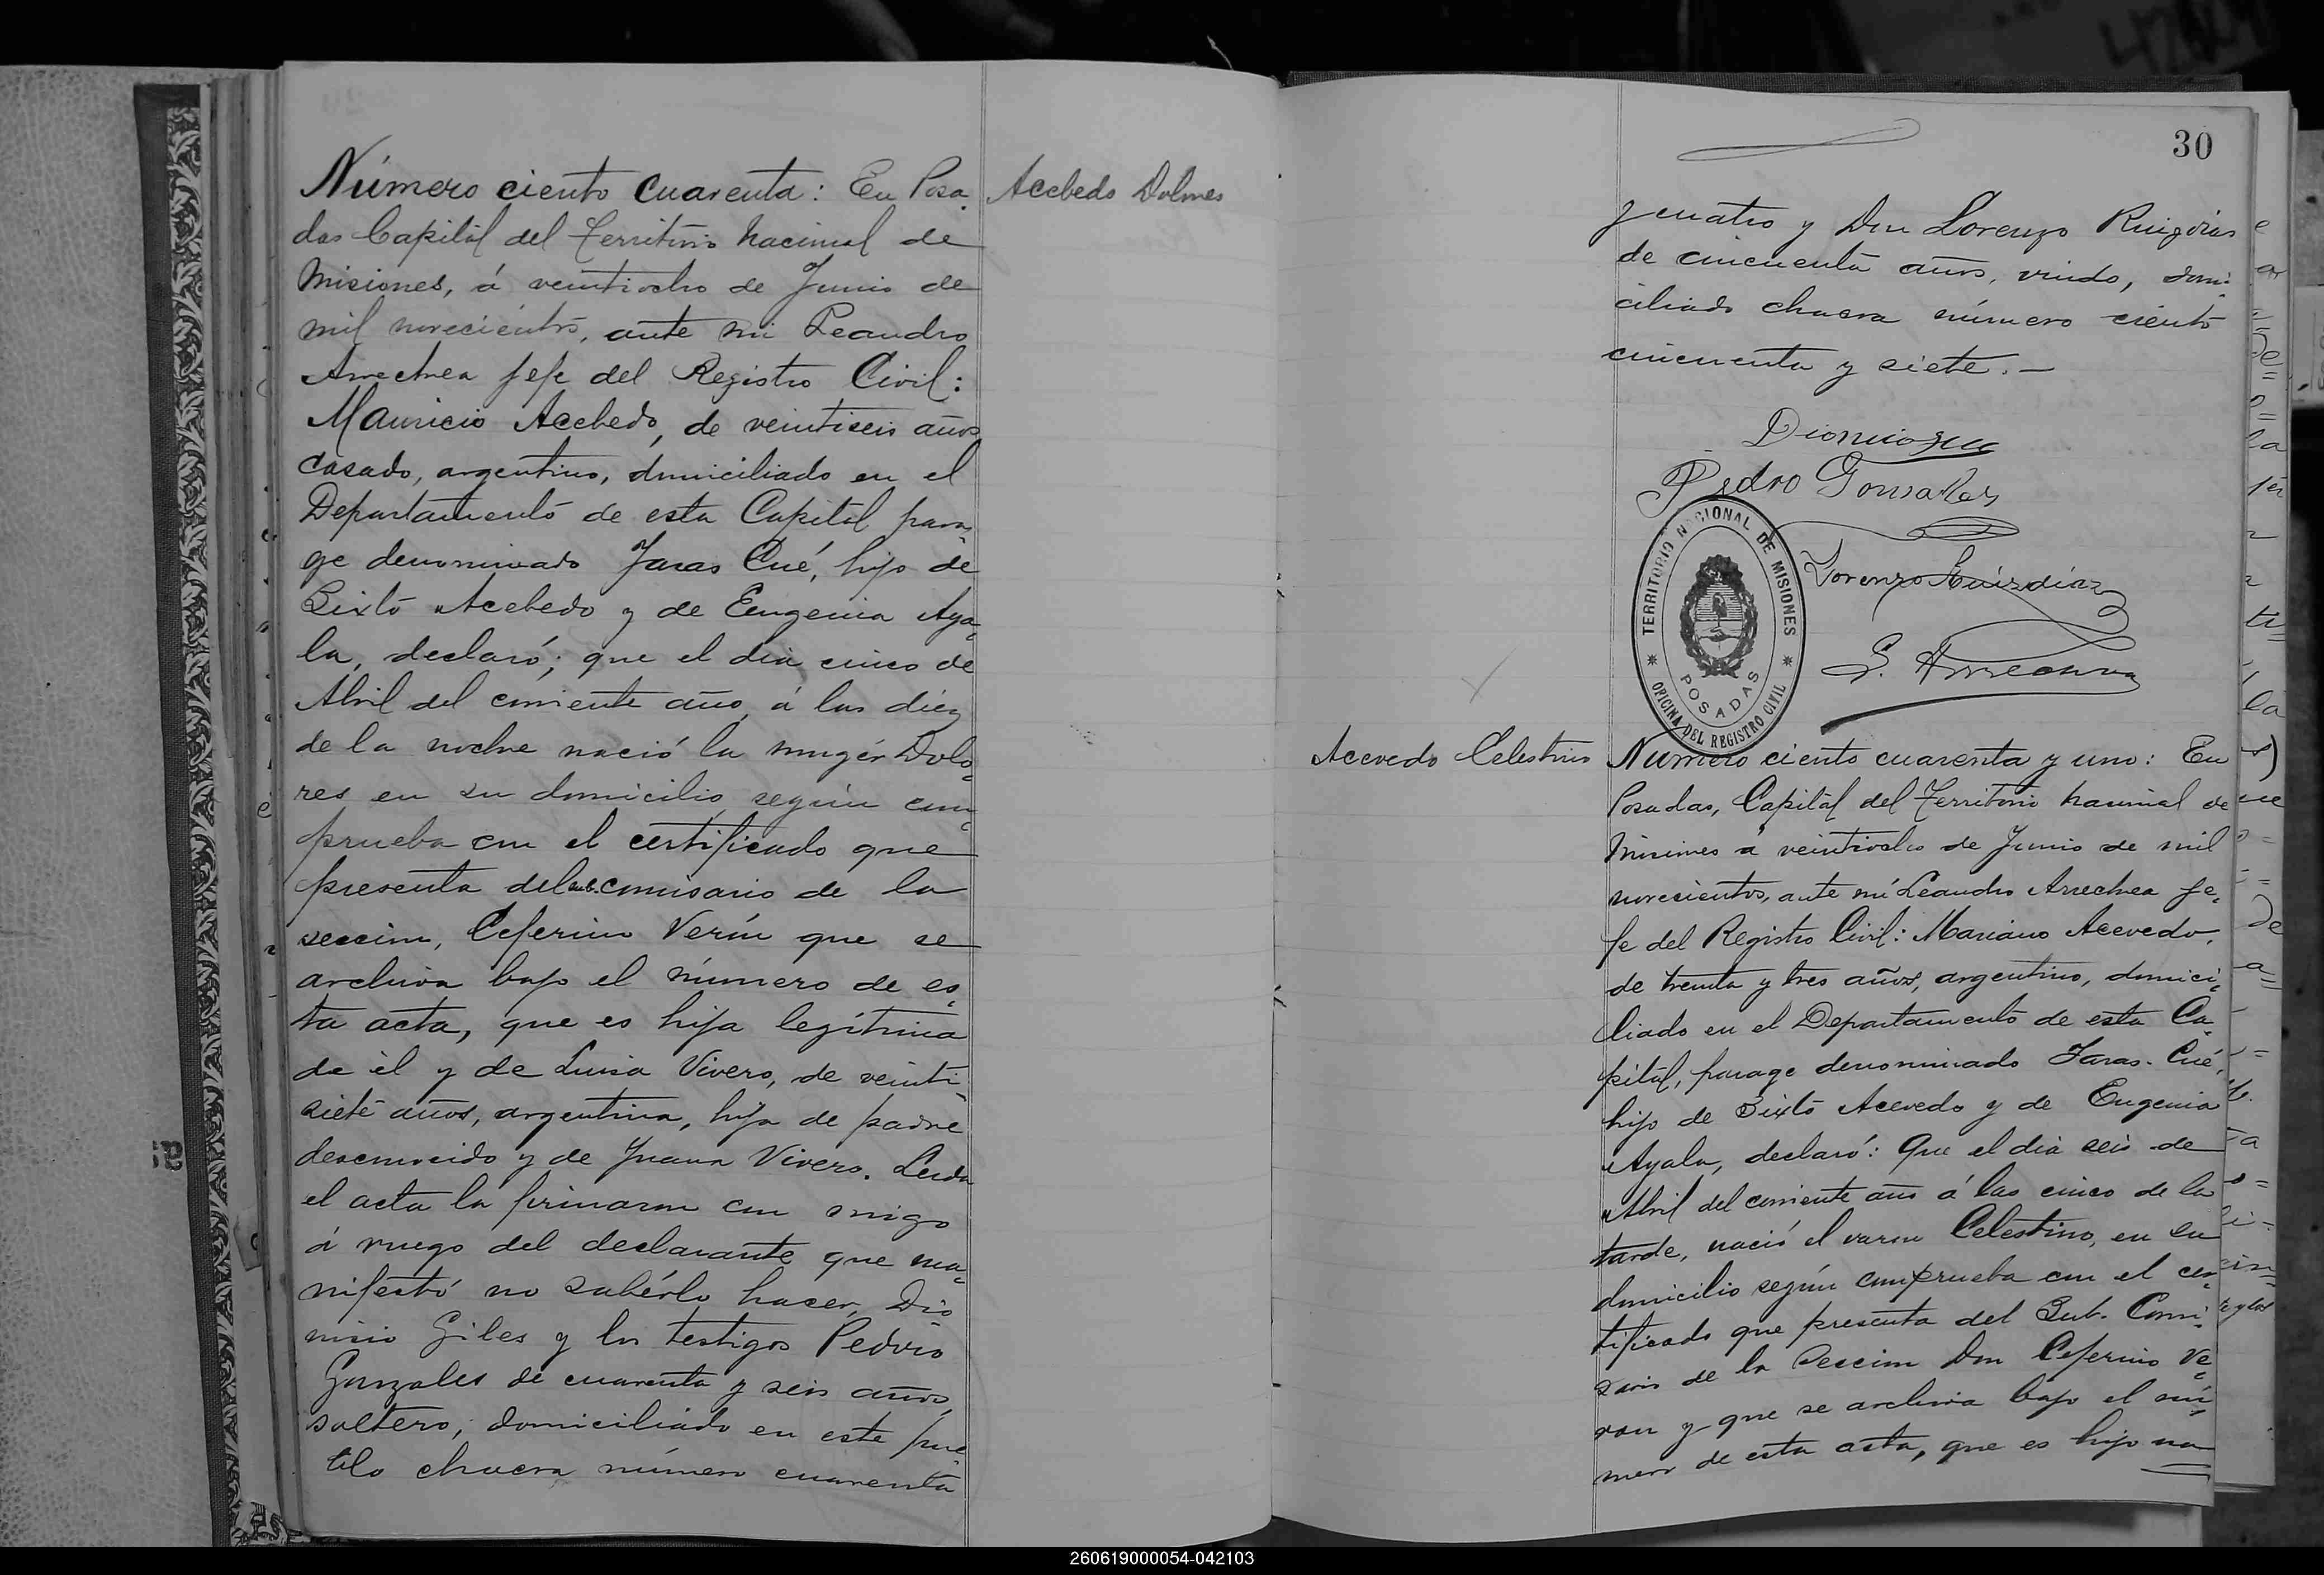 Número ciento cuarenta: En Posa-
das Capital del Territorio Nacional de
Misiones, á veintiocho de Junio de
mil novecientos, ante mi Leandro
Arrechea Jefe del Registro Civil:
Mauricio Acebedo, de veintiseis años
casado, argentino, domiciliado en el
Departamento de esta Capital para-
ge denominado Jaras Cué, hijo de
Sixto Acebedo y de Eugenia Aya-
la, declaró; que el dia cinco de
Abril del corriente año, á las diez
de la noche nació la muger Dolo-
res en su domicilio, según com-
prueba con el certificado que
presenta del sub.comisario de la
seccion, Ceferino Verón que se
archiva bajo el número de es-
ta acta, que es hija legítima
de él y de Luisa Vivero, de veinti-
siete años, argentina, hija de padre
desconocido y de Juana Vivero. Leida
el acta la firmaron con migo
á ruego del declarante que ma-
nifestó no saberlo hacer, Dio
nisio Giles y los testigos Pedro
Gonzales de cuarenta y seis años,
soltero, domiciliado en este pue
blo chacra número cuarenta
Acebedo Dolores
30
y cuatro y Don Lorenzo Ruizdias
de cincuenta años, viudo, domi-
ciliado chacra número ciento
cincuenta y siete.—
Dionicio
Pedro Gonzales
Lorenzo Ruizdiaz
L. Arrechea
TERRITORIO NACIONAL DE MISIONES
OFICINA DEL REGISTRO CIVIL
POSADAS
Acevedo Celestino
Numero ciento cuarenta y uno: En
Posadas, Capital del Territorio Nacional de
Misiones á veintiocho de Junio de mil
novecientos, ante mí Leandro Arrechea Je-
fe del Registro Civil: Mariano Acevedo,
de treinta y tres años, argentino, domici-
liado en el Departamento de esta Ca-
pital, parage denominado Jaras-Cué,
hijo de Sixto Acevedo y de Eugenia
Ayala, declaró: Que el dia seis de
Abril del corriente año á las cinco de la
tarde, nació el varon Celestino, en su
domicilio según comprueba con el cer-
tificado que presenta del Sub. Comi-
sario de la Seccion Don Ceferino Ve-
ron y que se archiva bajo el nú-
mero de esta acta, que es hijo na
260619000054-042103